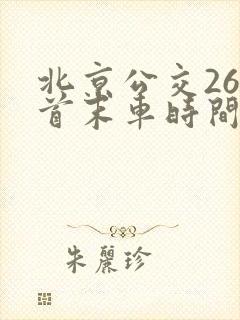 北京公交26
首末車時間
朱麗珍